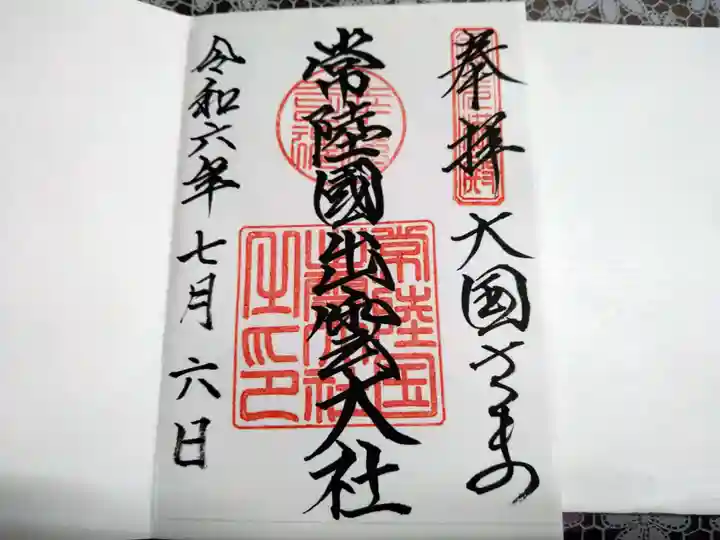 奉拝
大国さまの
常陸國出雲大社
令和六年七月六日
常陸国
出雲大社
之印